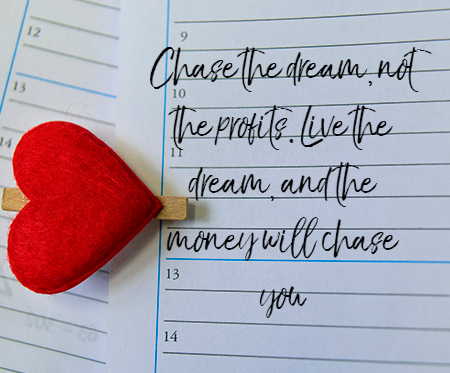 12
13
14
9
Chase the dream, not
10
the profits. Live the
11
dream, and the
money will chase
13
you
14